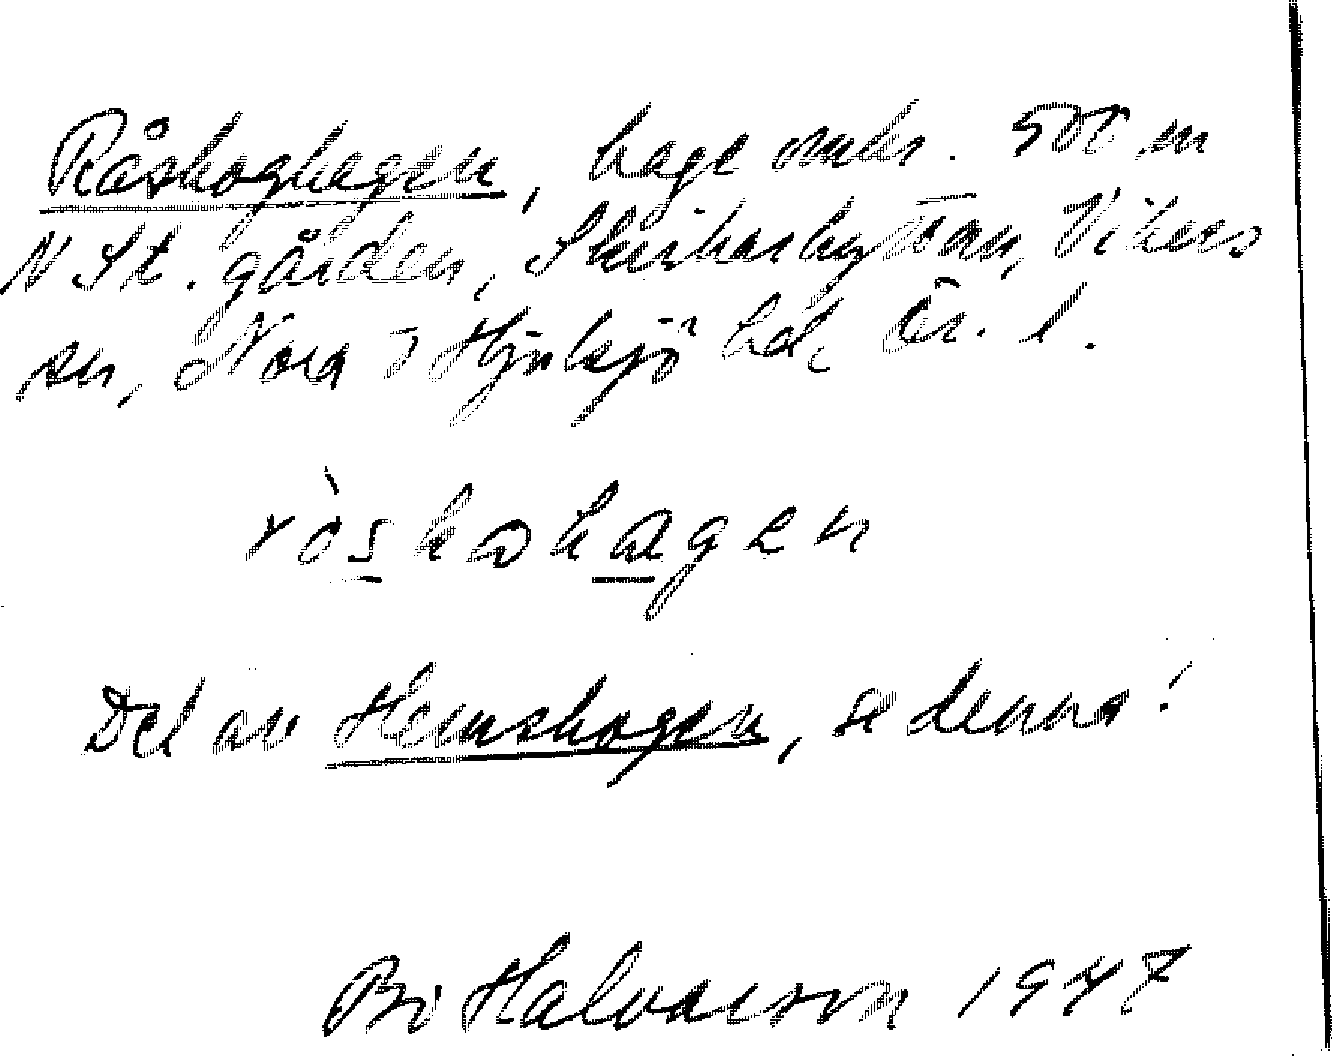 Råskoghagen, hage omkr. 500 m
N St. gården, Skrikarhyttan, Vikers
sn, Nora o Hjulsjö hd, Ör. l.
ròskohagen
Del av Hemskogen, se denna!
Bo Halvarson 1947